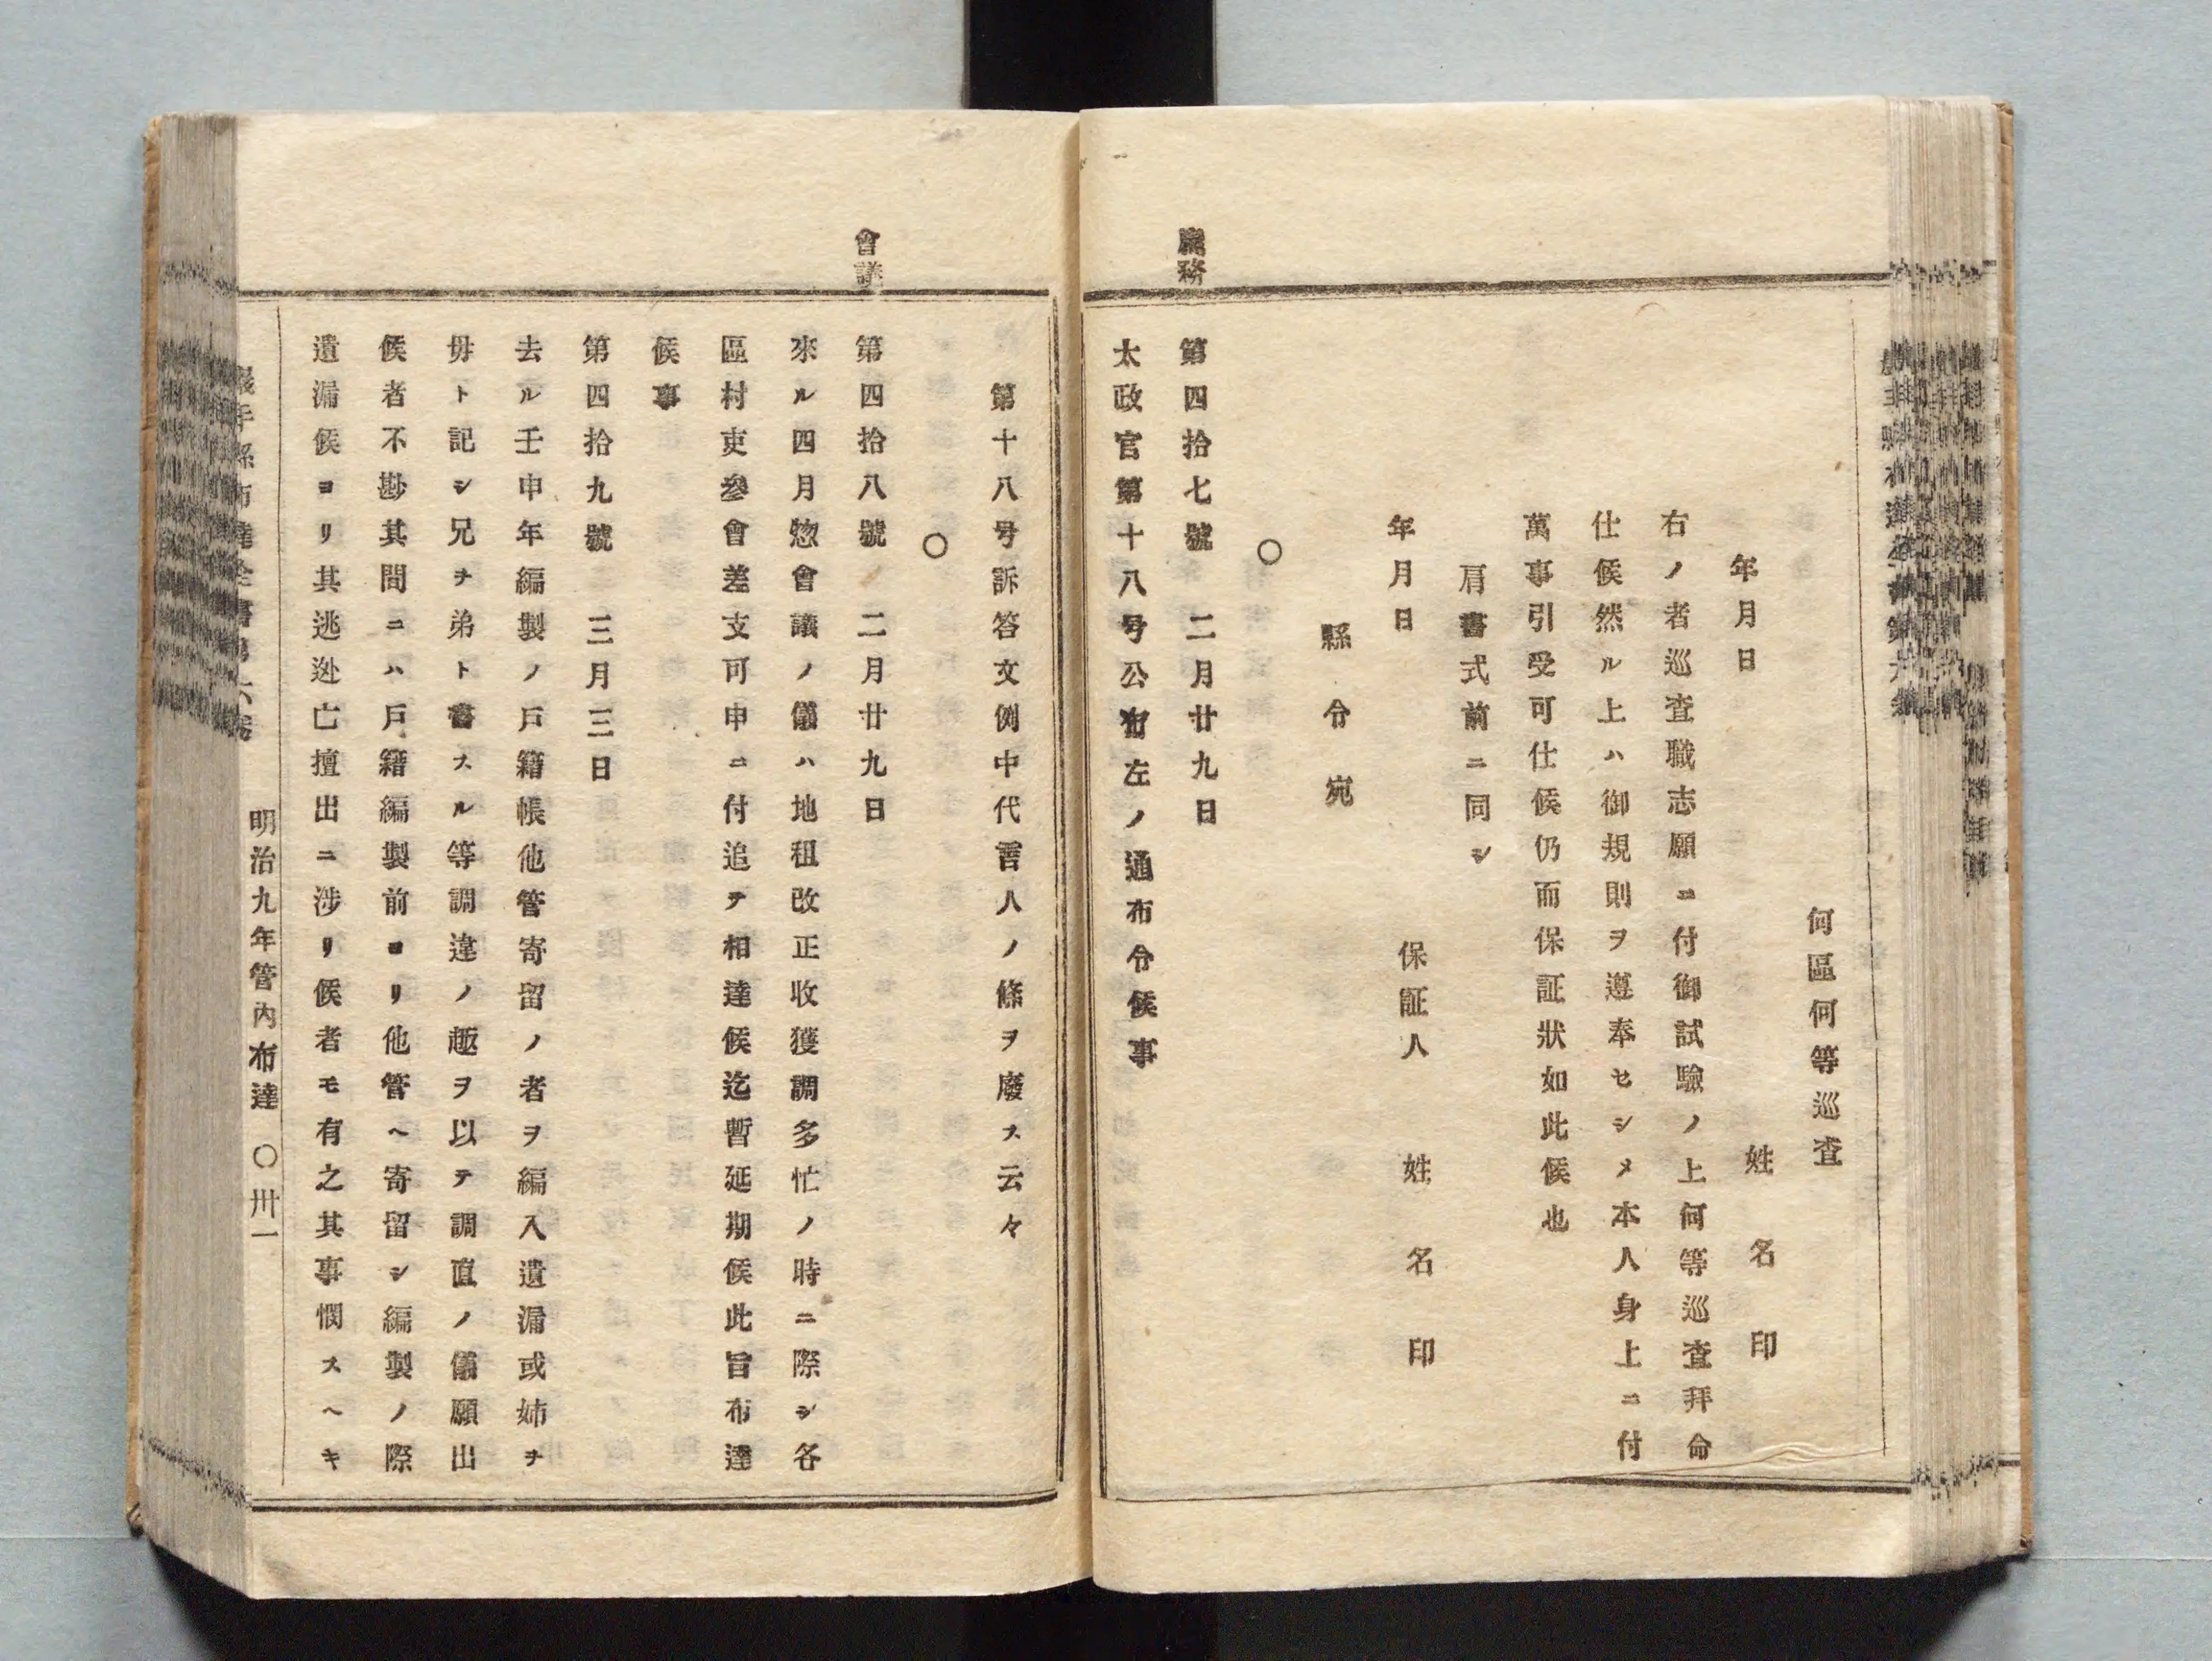 何區何等巡査
年月日　姓名印
右ノ者巡査職志願ニ付御試驗ノ上何等巡査拜命
仕候然ル上ハ御規則ヲ遵奉セシメ本人身上ニ付
萬事引受可仕候仍而保証狀如此候也
肩書式前ニ同シ
年月日　保証人　姓名印
縣令宛
〇
庶務
第四拾七號　二月廿九日
太政官第十八号公布左ノ通布令候事
第十八号訴答文例中代言人ノ條ヲ廢ス云々
〇
會議
第四拾八號　二月廿九日
來ル四月惣會議ノ儀ハ地租改正收獲調多忙ノ時ニ際シ各
區村吏參會差支可申ニ付追テ相達候迄暫延期候此旨布達
候事
第四拾九號　三月三日
去ル壬申年編製ノ戸籍帳他管寄留ノ者ヲ編入遺漏或姉ヲ
毋ト記シ兄ヲ弟ト書スル等調違ノ趣ヲ以テ調直ノ儀願出
候者不尠其間ニハ戸籍編製前ヨリ他管ヘ寄留シ編製ノ際
遺漏候ヨリ其逃迯亡擅出ニ涉リ候者モ有之其事憫スヘキ
明治九年管內布達　〇卅一